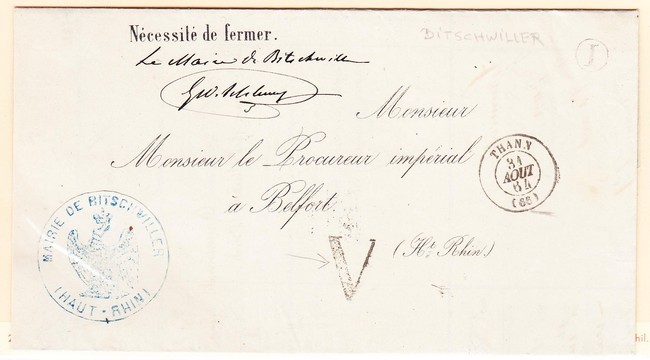 Nécessité de fermer.
BITSCHWILLER
J
Le Maire de Bitschwiller
Monsieur
Monsieur le Procureur impérial
à Belfort.
(Ht. Rhin)
THANN
31
AOUT
64
(66)
MAIRIE DE BITSCHWILLER
(HAUT-RHIN)
V
2
hil.